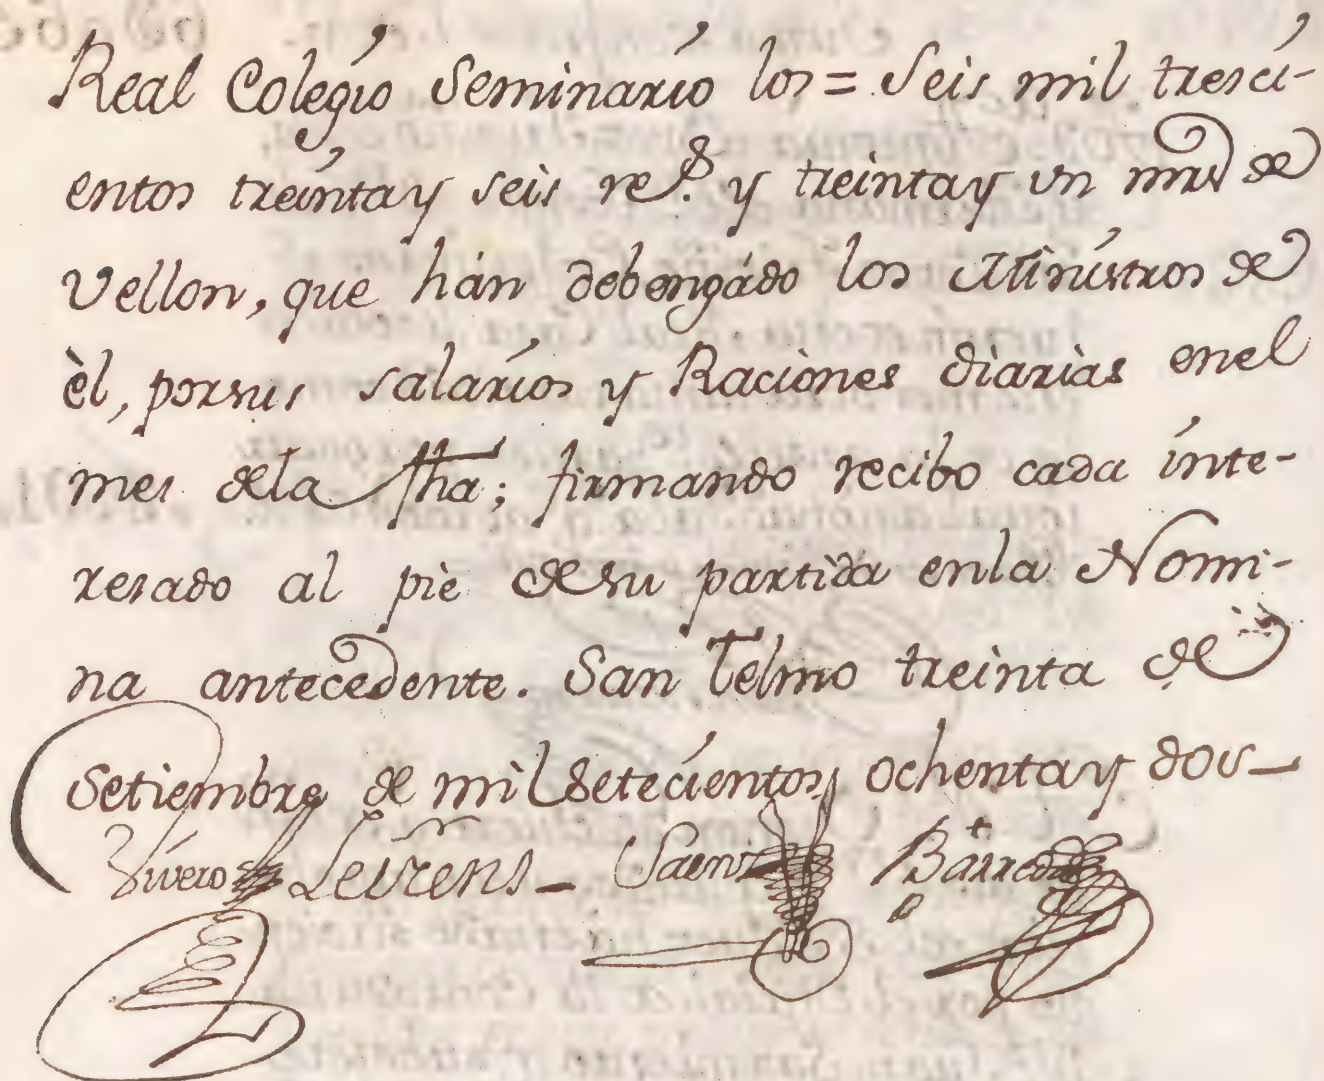 Real Colegio Seminario los = Seis mil tresci-
entos treinta y seis rs. y treinta y un mrs de
Vellon, que hán debengádo los Ministros de
èl, por sus salarios y Raciones diarias en el
mes de la fha; firmando recibo cada inte-
resado al piè de su partida en la Nomi-
na antecedente. San Telmo treinta de
Setiembre de mil setecientos ochenta y dos_
Vivero Saenz Barreda